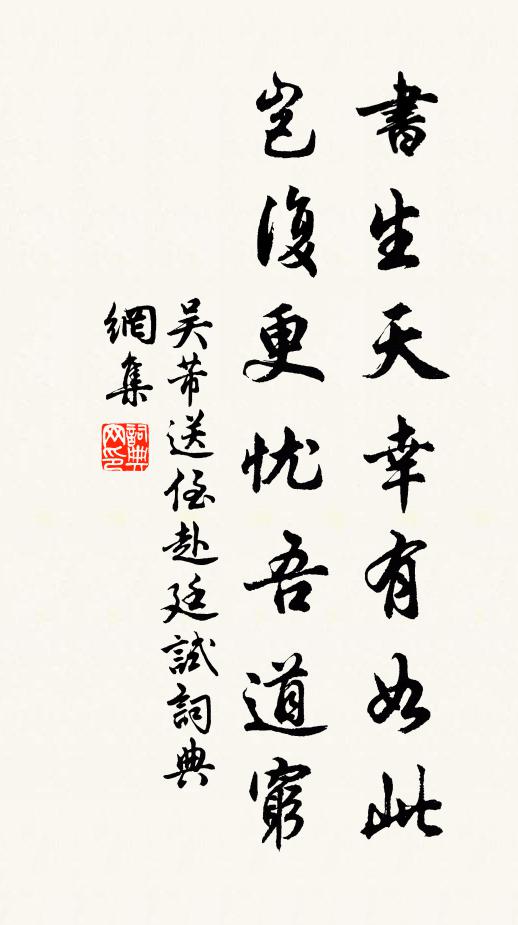 書生天幸有如此
豈復更忧吾道窮
吴芾送侄赴廷試詞典
網集
詞典
网印